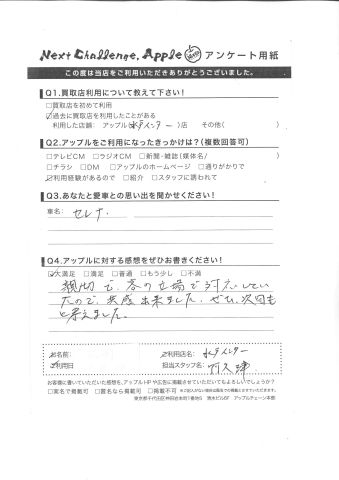 Next Challenge, Apple アンケート用紙
この度は当店をご利用いただきありがとうございました。
Q1.買取店利用について教えて下さい!
□買取店を初めて利用
☑過去に買取店を利用したことがある
利用した店舗: アップル(水戸インター)店 その他( )
Q2.アップルをご利用になったきっかけは?(複数回答可)
□テレビCM □ラジオCM □新聞・雑誌(媒体名/ )
□チラシ □DM □アップルのホームページ □通りがかりで
☑利用経験があるので □紹介 □スタッフに誘われて
Q3.あなたと愛車との思い出を聞かせください!
車名: セレナ
Q4.アップルに対する感想をぜひお書きください!
☑大満足 □満足 □普通 □もう少し □不満
親切で、客の立場で対応してい
たので、共感出来ました。ぜひ、次回も
と考えました。
お名前: ご利用店名: 水戸インター
ご利用日 担当スタッフ名: 阿久津
お客様に書いていただいた感想を、アップルHPや広告に掲載させていただいてもよろしいでしょうか?
□実名で掲載可 □匿名なら掲載可 □掲載不可
東京都千代田区神田岩本町1番地5 清水ビル5F アップルチェーン本部